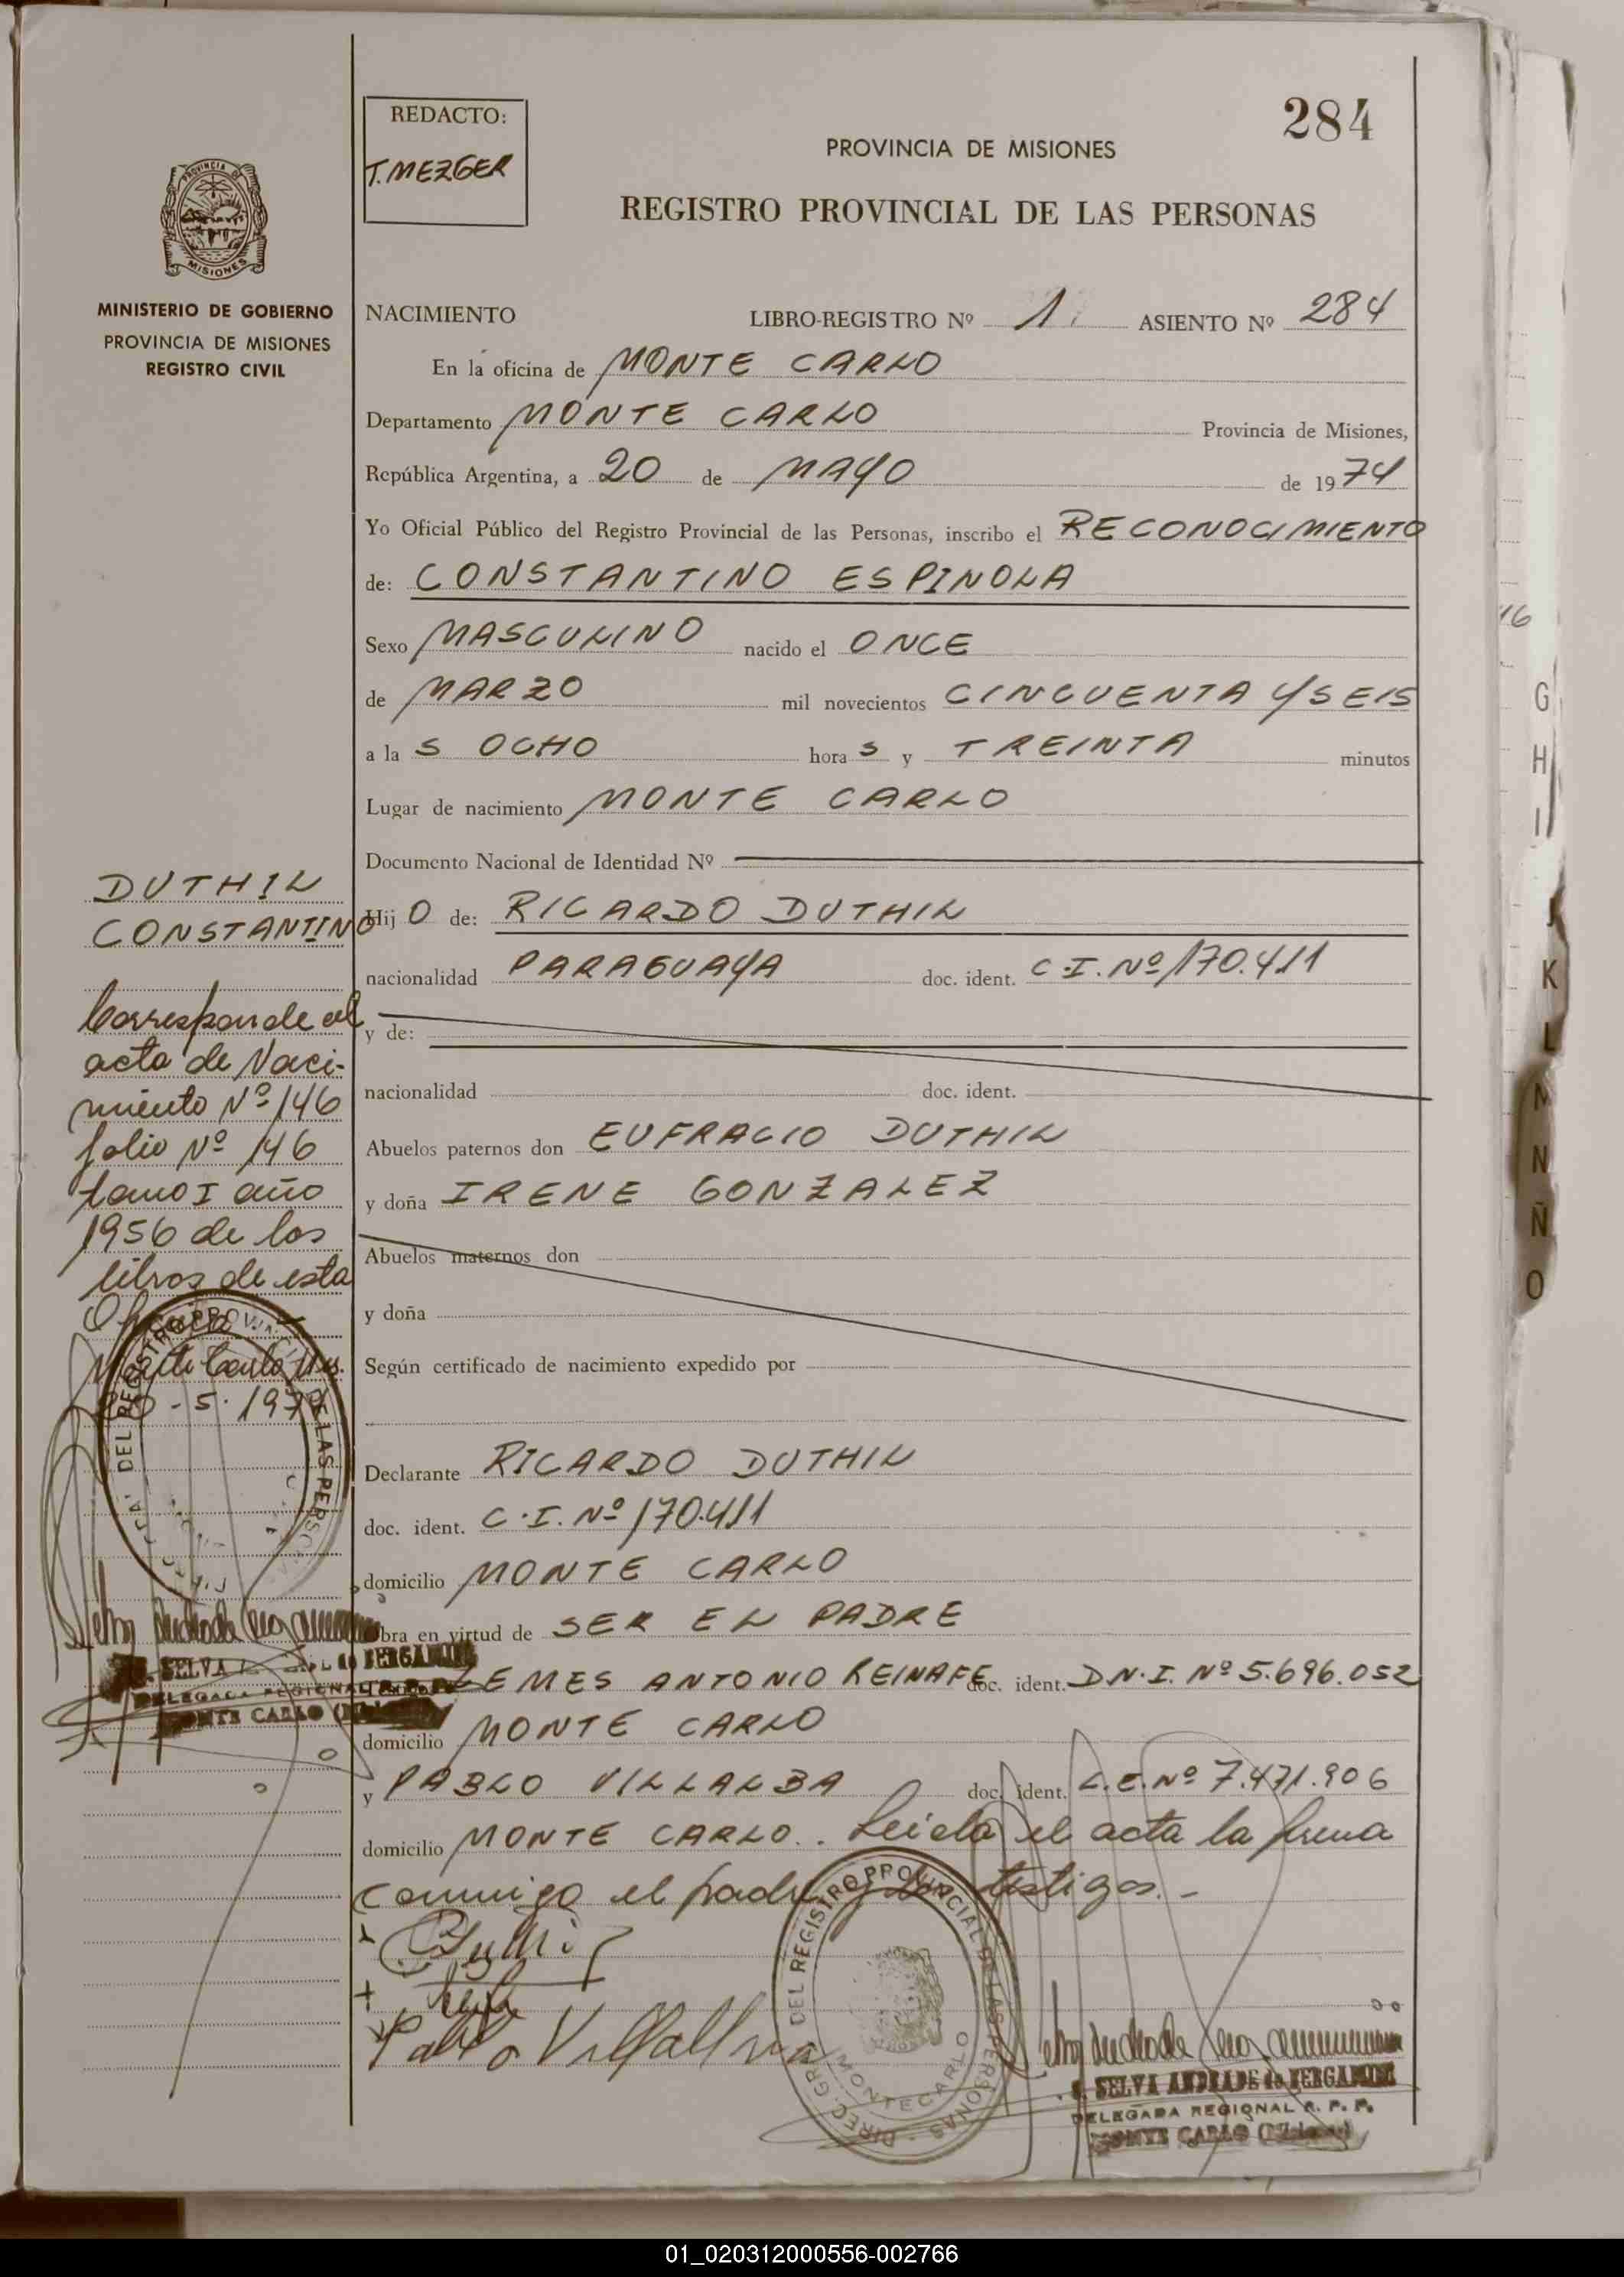 284
REDACTO:
T. MEZGER
PROVINCIA DE MISIONES
REGISTRO PROVINCIAL DE LAS PERSONAS
PROVINCIA DE
MISIONES
MINISTERIO DE GOBIERNO
PROVINCIA DE MISIONES
REGISTRO CIVIL
NACIMIENTO LIBRO-REGISTRO Nº 1 ASIENTO Nº 284
En la oficina de MONTE CARLO
Departamento MONTE CARLO Provincia de Misiones,
República Argentina, a 20 de MAYO de 1974
Yo Oficial Público del Registro Provincial de las Personas, inscribo el RECONOCIMIENTO
de: CONSTANTINO ESPINOLA
Sexo MASCULINO nacido el ONCE
de MARZO mil novecientos CINCUENTA Y SEIS
a la s OCHO hora s y TREINTA minutos
Lugar de nacimiento MONTE CARLO
Documento Nacional de Identidad Nº
Hij O de: RICARDO DUTHIL
nacionalidad PARAGUAYA doc. ident. C.I. Nº 170.411
y de:
nacionalidad doc. ident.
Abuelos paternos don EUFRACIO DUTHIL
y doña IRENE GONZALEZ
Abuelos maternos don
y doña
Según certificado de nacimiento expedido por
Declarante RICARDO DUTHIL
doc. ident. C.I. Nº 170.411
domicilio MONTE CARLO
obra en virtud de SER EL PADRE
LEMES ANTONIO REINAFE doc. ident. D.N.I. Nº 5.696.052
domicilio MONTE CARLO
y PABLO VILLALBA doc. ident. L.E. Nº 7.471.906
domicilio MONTE CARLO.. Leida el acta la firma
conmigo el padre y los testigos.-
Pablo Villalba
DIREC. GRAL. DEL REGISTRO PROVINCIAL DE LAS PERSONAS
MONTECARLO
S. SELVA ANDRADE de BERGAMINI
DELEGADA REGIONAL R. P. P.
MONTE CARLO
DUTHIL
CONSTANTINO
Corresponde al
acta de Naci-
miento Nº 146
folio Nº 146
tomo I año
1956 de los
libros de esta
Oficina
Monte Carlo Ms.
20-5-1974
DEL REGISTRO PROVINCIAL DE LAS PERSONAS
SELVA BERGAMINI
DELEGADA REGIONAL
MONTE CARLO
16
G
H
I
J
K
L
M
N
Ñ
O
01_020312000556-002766